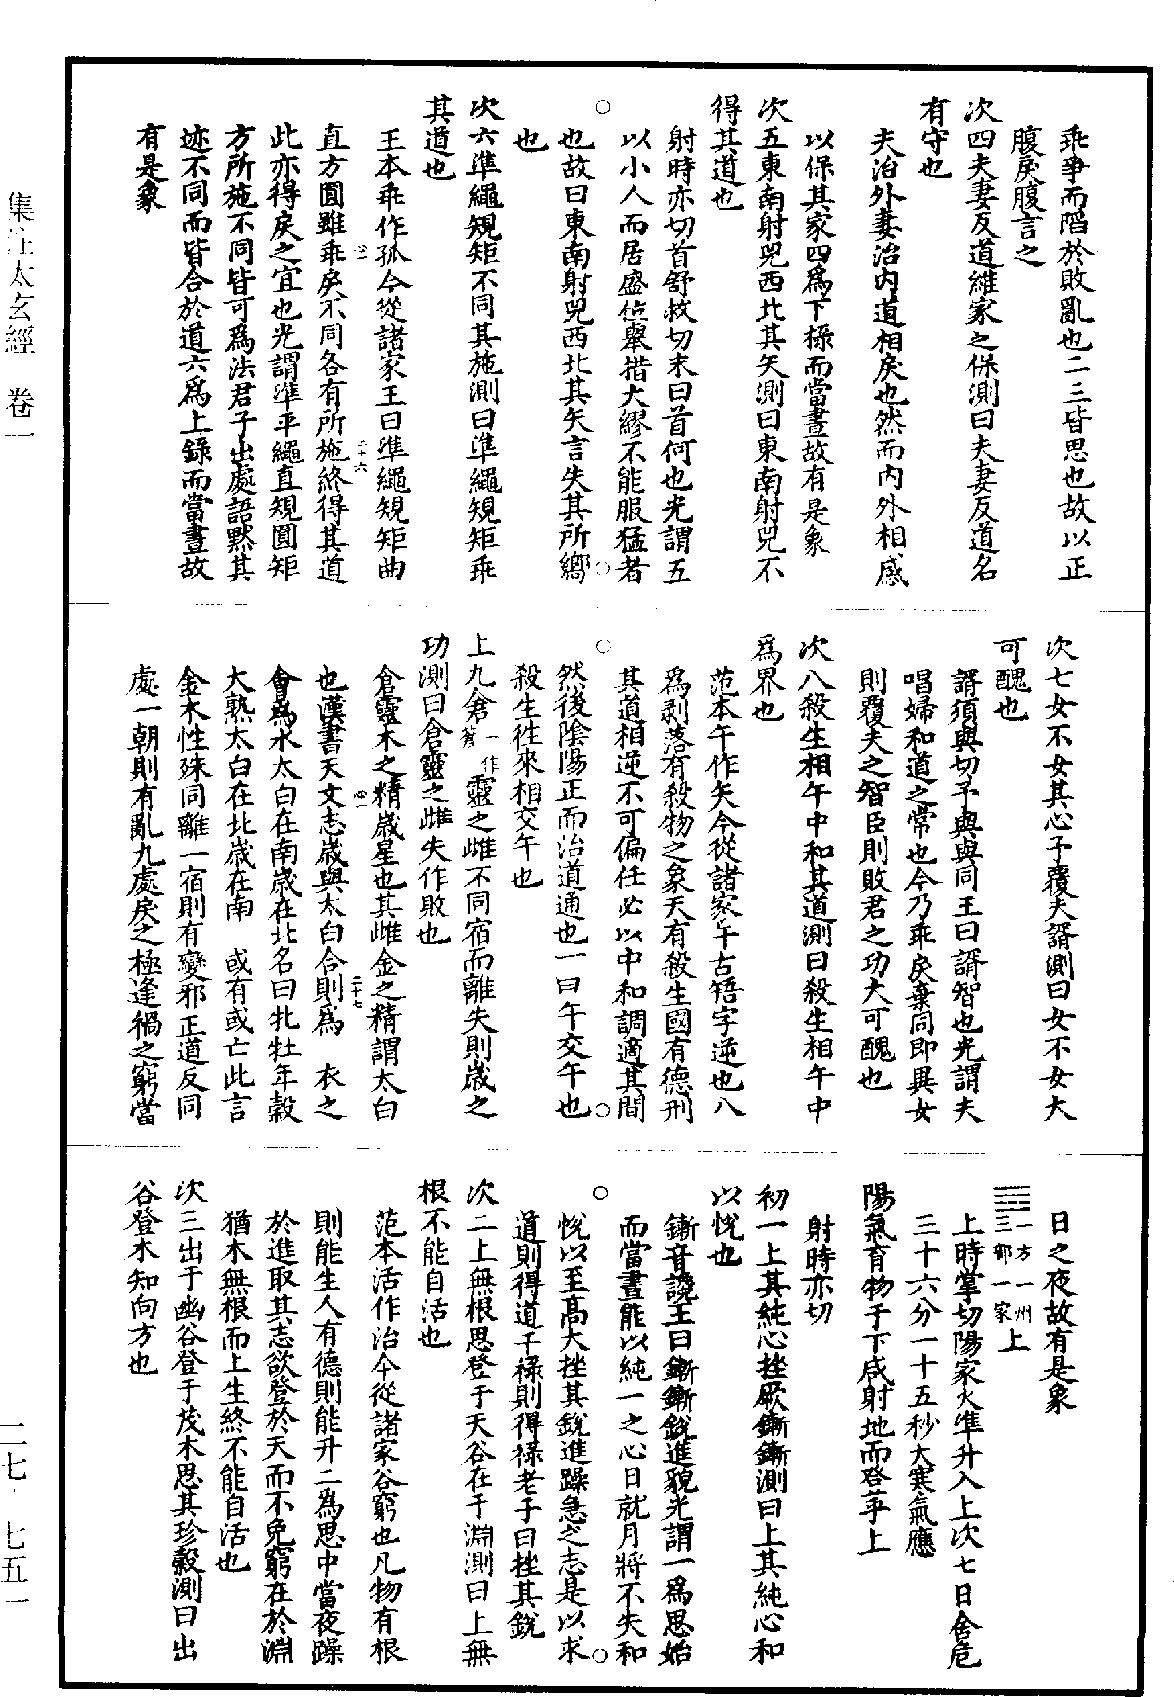 乖爭而陷於敗亂也二三皆思也故以正
腹戾腹言之
次四夫妻反道維家之保測曰夫妻反道名
有守也
夫治外妻治內道相戾也然而內外相感
以保其家四爲下祿而當晝故有是象
次五東南射兕西北其矢測曰東南射兕不
得其道也
射時亦切首舒救切宋曰首何也光謂五
以小人而居盛位舉措大繆不能服猛者
也故曰東南射兕西北其矢言失其所嚮
也
次六準繩規矩不同其施測曰準繩規矩乖
其道也
王本乖作孤今從諸家王曰準繩規矩曲
直方圓雖乖戾不同各有所施終得其道
此亦得戾之宜也光謂準平繩直規圓矩
方所施不同皆可爲法君子出處語默其
迹不同而皆合於道六爲上祿而當晝故
有是象
次七女不女其心予覆夫諝測曰女不女大
可醜也
諝須與切予與與同王曰諝智也光謂夫
唱婦和道之常也今乃乖戾棄同即異女
則覆夫之智臣則敗君之功大可醜也
次八殺生相午中和其道測曰殺生相午中
爲界也
范本午作矢今從諸家午古牾字逆也八
爲剥落有殺物之象天有殺生國有德刑
其道相逆不可偏任必以中和調適其間
然後陰陽正而治道通也一曰午交午也
殺生往來相交午也
上九倉一作蒼靈之雌不同宿而離失則歲之
功測曰倉靈之雌失作敗也
倉靈木之精歲星也其雌金之精謂太白
也漢書天文志歲與太白合則爲 衣之
會爲水太白在南歲在北名曰牝牡年穀
大熟太白在北歲在南 或有或亡此言
金木性殊同離一宿則有變邪正道反同
處一朝則有亂九處戾之極逢禍之窮當
日之夜故有是象
一方一州三部一家上
上時掌切陽家火準升入上次七日舍危
三十六分一十五秒大寒氣應
陽氣育物于下咸射地而登乎上
射時亦切
初一上其純心挫厥鏩鏩測曰上其純心和
以悅也
鏩音讒王曰鏩鏩銳進貌光謂一爲思始
而當晝能以純一之心日就月將不失和
悅以至高大挫其銳進躁急之志是以求
道則得道干祿則得祿老子曰挫其銳
次二上無根思登于天谷在于淵測曰上無
根不能自活也
范本活作治今從諸家谷窮也凡物有根
則能生人有德則能升二爲思中當夜躁
於進取其志欲登於天而不免窮在於淵
猶木無根而上生終不能自活也
次三出于幽谷登于茂木思其珍穀測曰出
谷登木知向方也
集注太玄經 卷一
二七·七五一